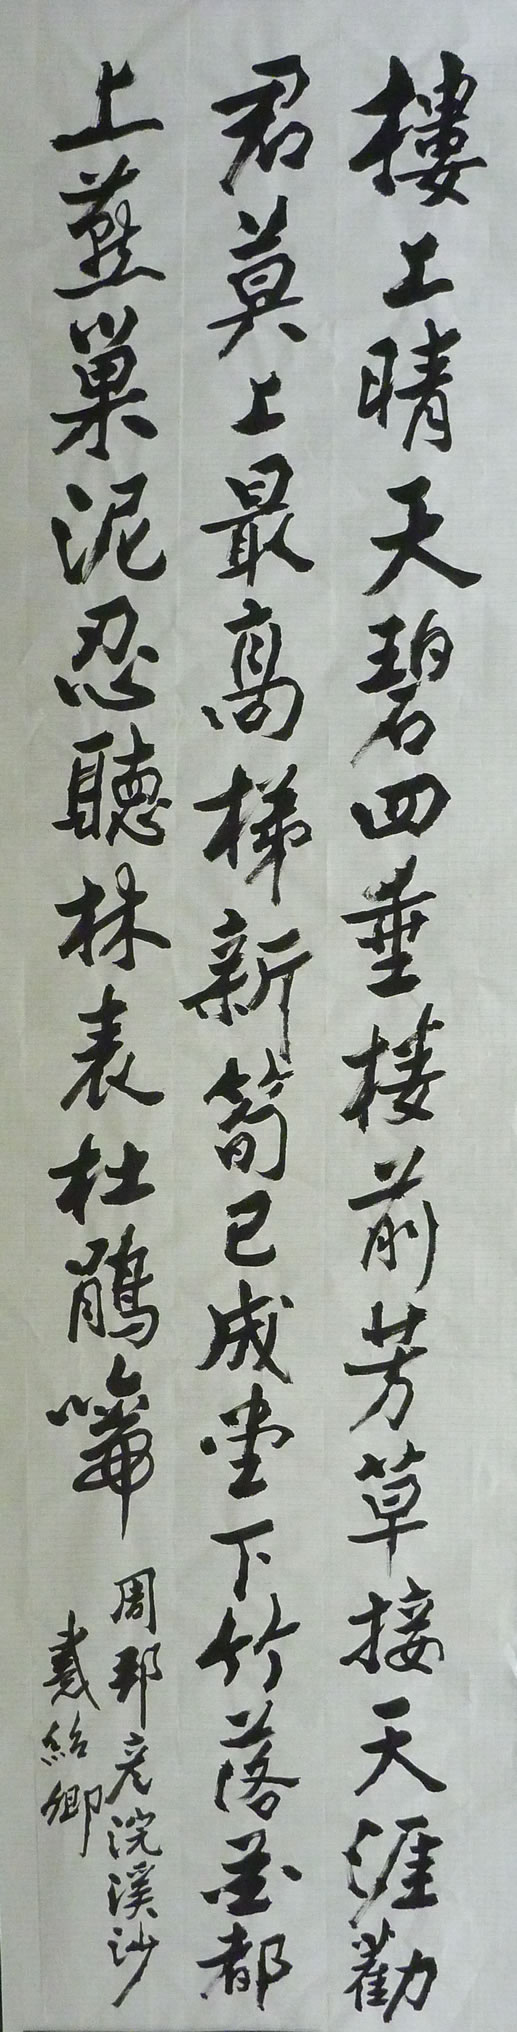 樓上晴天碧四垂楼前芳草接天涯勸
君莫上最高梯新筍已成堂下竹落花都
上燕巢泥忍聽林表杜鵑啼
周邦彦浣溪沙
戴紹卿